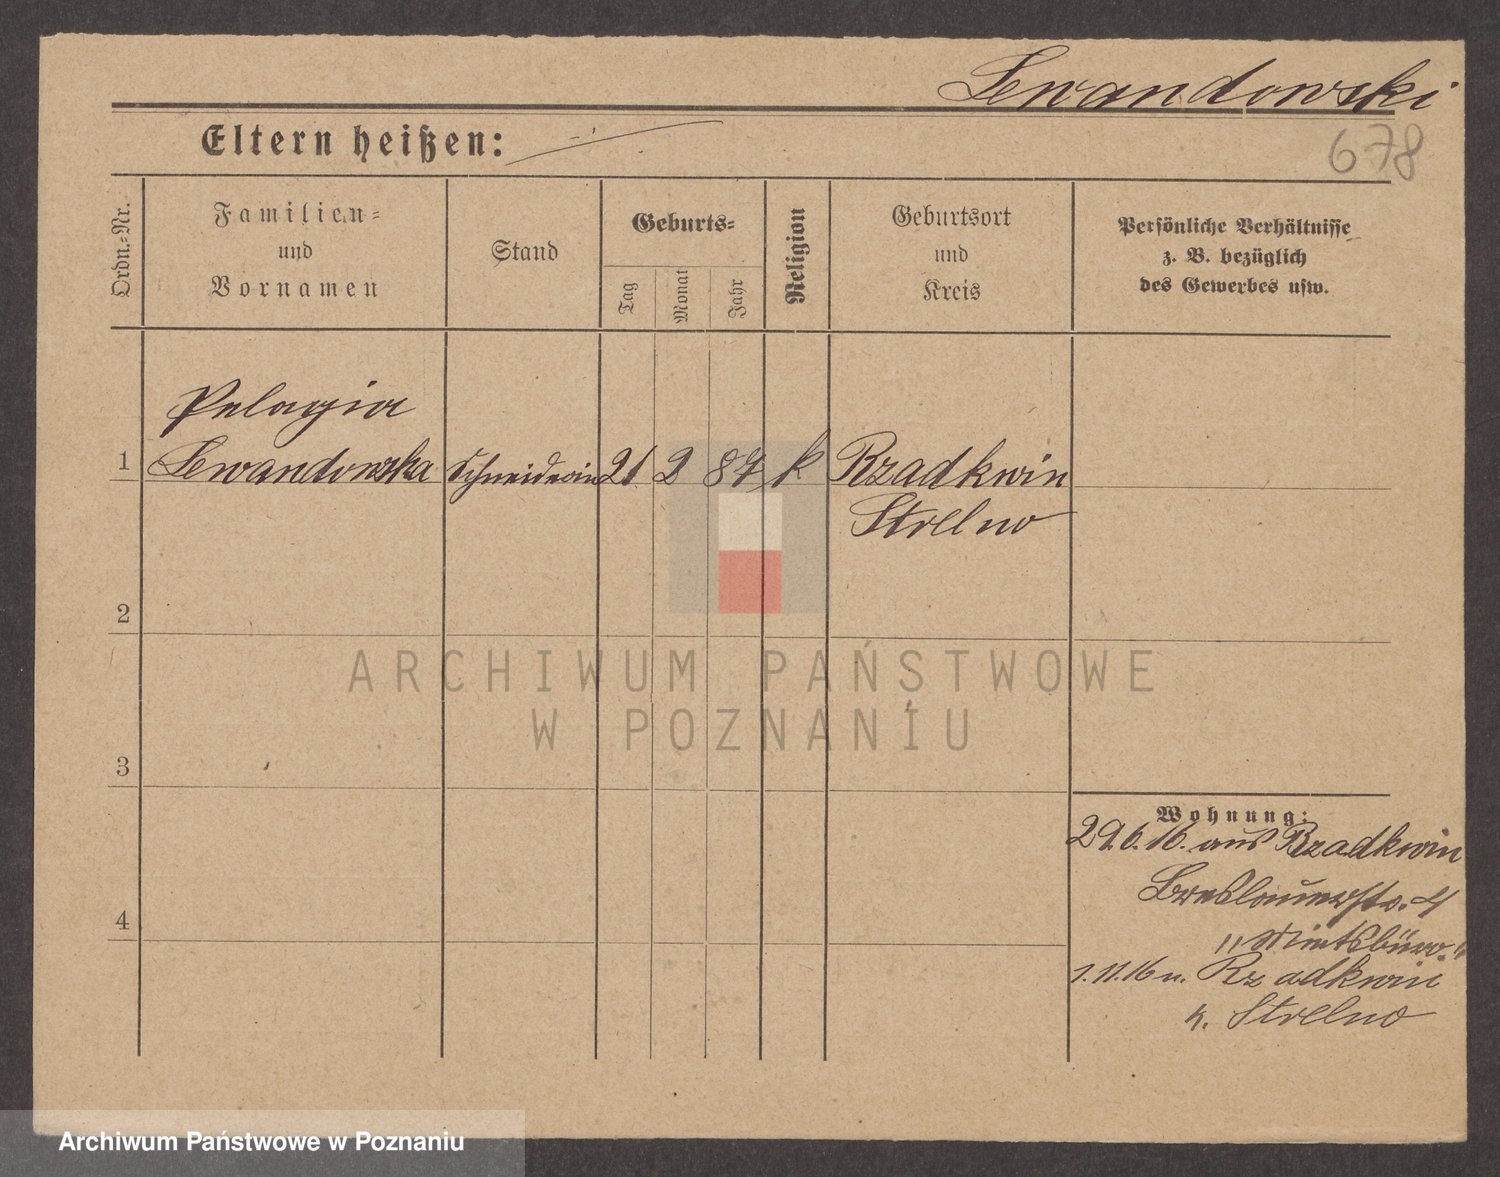 Lewandowski
Eltern heißen:
678
Ordn.-Nr.
Familien-
und
Vornamen
Stand
Geburts-
Tag
Monat
Jahr
Religion
Geburtsort
und
Kreis
Persönliche Verhältnisse
z. B. bezüglich
des Gewerbes usw.
Pelagia
1 Lewandowska Schneiderin 21 2 87 k Rzadkwin
Strelno
2
3
4
Wohnung:
29.6.16. aus Rzadkwin
Breslauerstr. 4
"Mietsbüro."
1.11.16 n. Rzadkwin
K. Strelno
ARCHIWUM PAŃSTWOWE
W POZNANIU
Archiwum Państwowe w Poznaniu